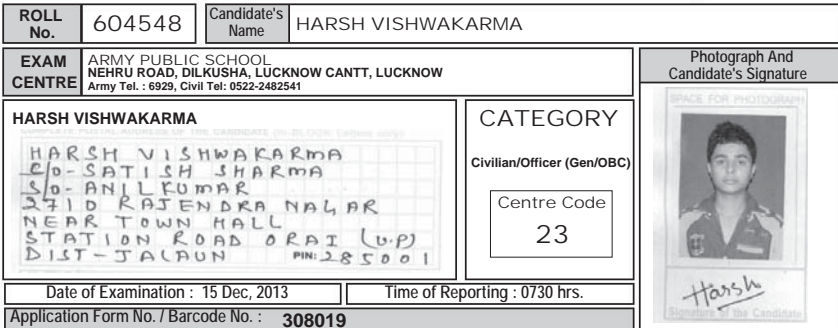 ROLL No.
604548
Candidate's Name
HARSH VISHWAKARMA
EXAM CENTRE
ARMY PUBLIC SCHOOL
NEHRU ROAD, DILKUSHA, LUCKNOW CANTT, LUCKNOW
Army Tel. : 6929, Civil Tel: 0522-2482541
Photograph And
Candidate's Signature
HARSH VISHWAKARMA
COMPLETE POSTAL ADDRESS OF THE CANDIDATE (IN BLOCK Letters only)
HARSH VISHWAKARMA
C/O- SATISH SHARMA
S/O- ANIL KUMAR
2710 RAJENDRA NAGAR
NEAR TOWN HALL
STATION ROAD ORAI (U.P)
DIST - JALAUN PIN: 285001
CATEGORY
Civilian/Officer (Gen/OBC)
Centre Code
23
SPACE FOR PHOTOGRAPH
Harsh
Signature of the Candidate
Date of Examination : 15 Dec, 2013
Time of Reporting : 0730 hrs.
Application Form No. / Barcode No. : 308019